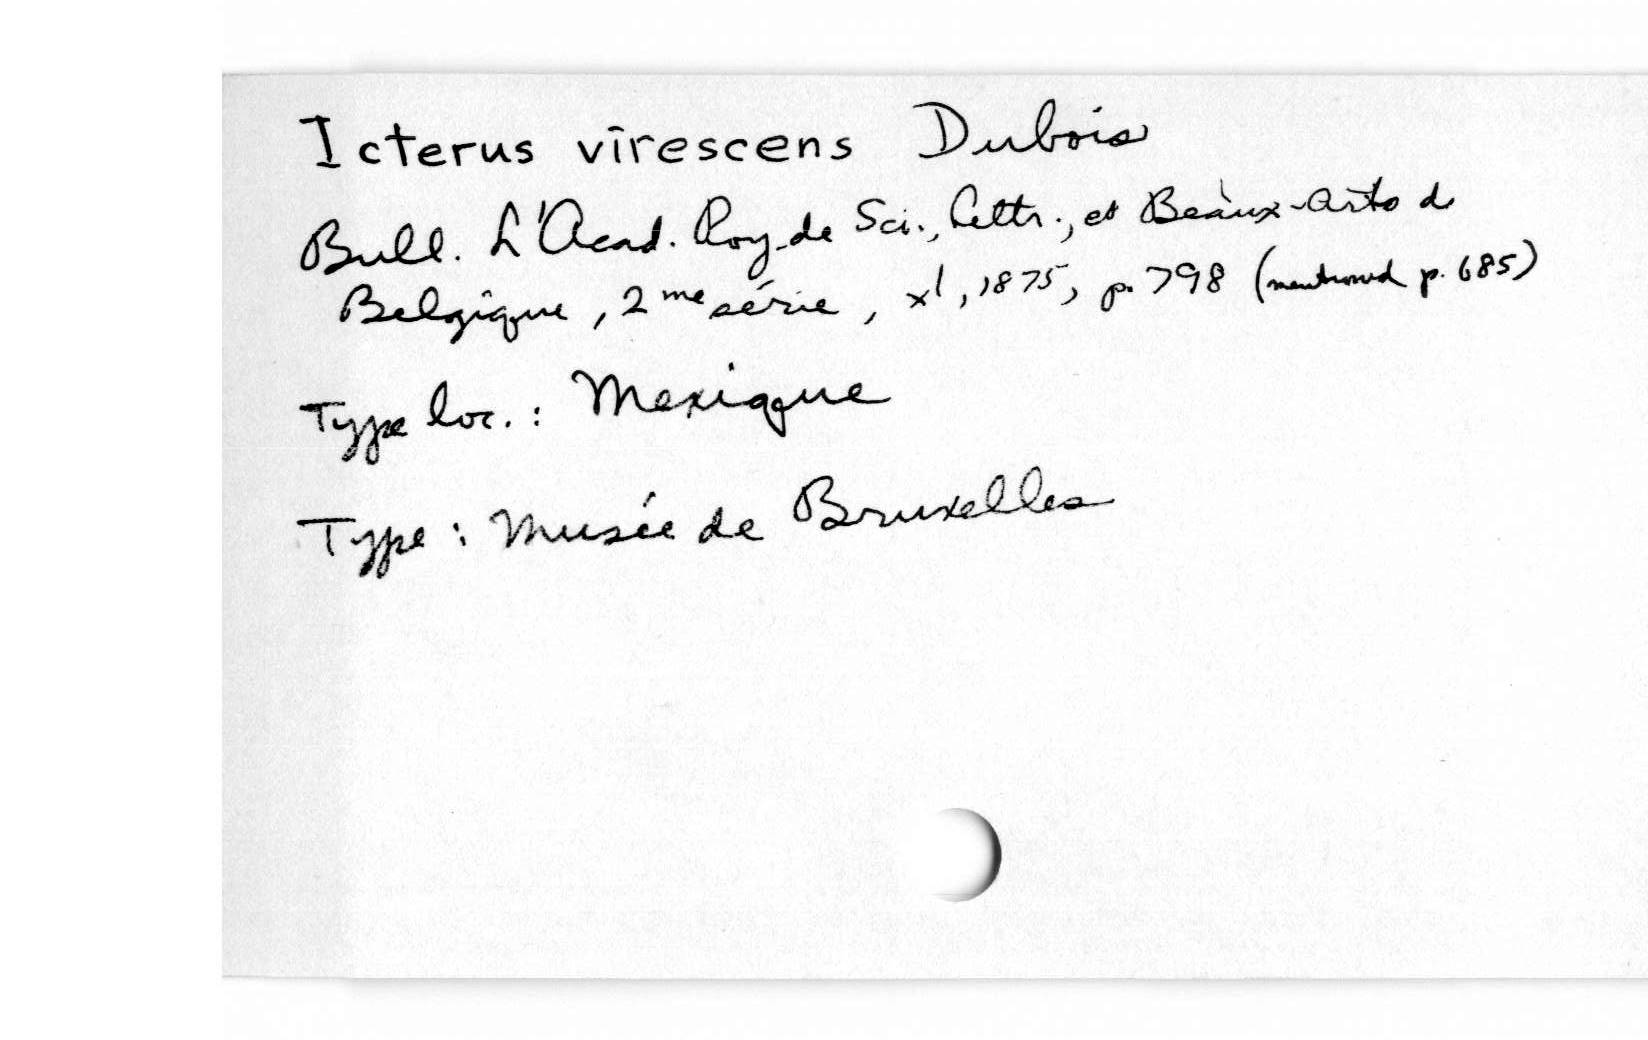 Icterus virescens Dubois
Bull. L'Acad. Roy. de Sci., Lettr., et Beaux-Arts de
Belgique, 2me série, xl, 1875, p. 798 (mentioned p. 685)
Type loc.: Mexique
Type: Musée de Bruxelles